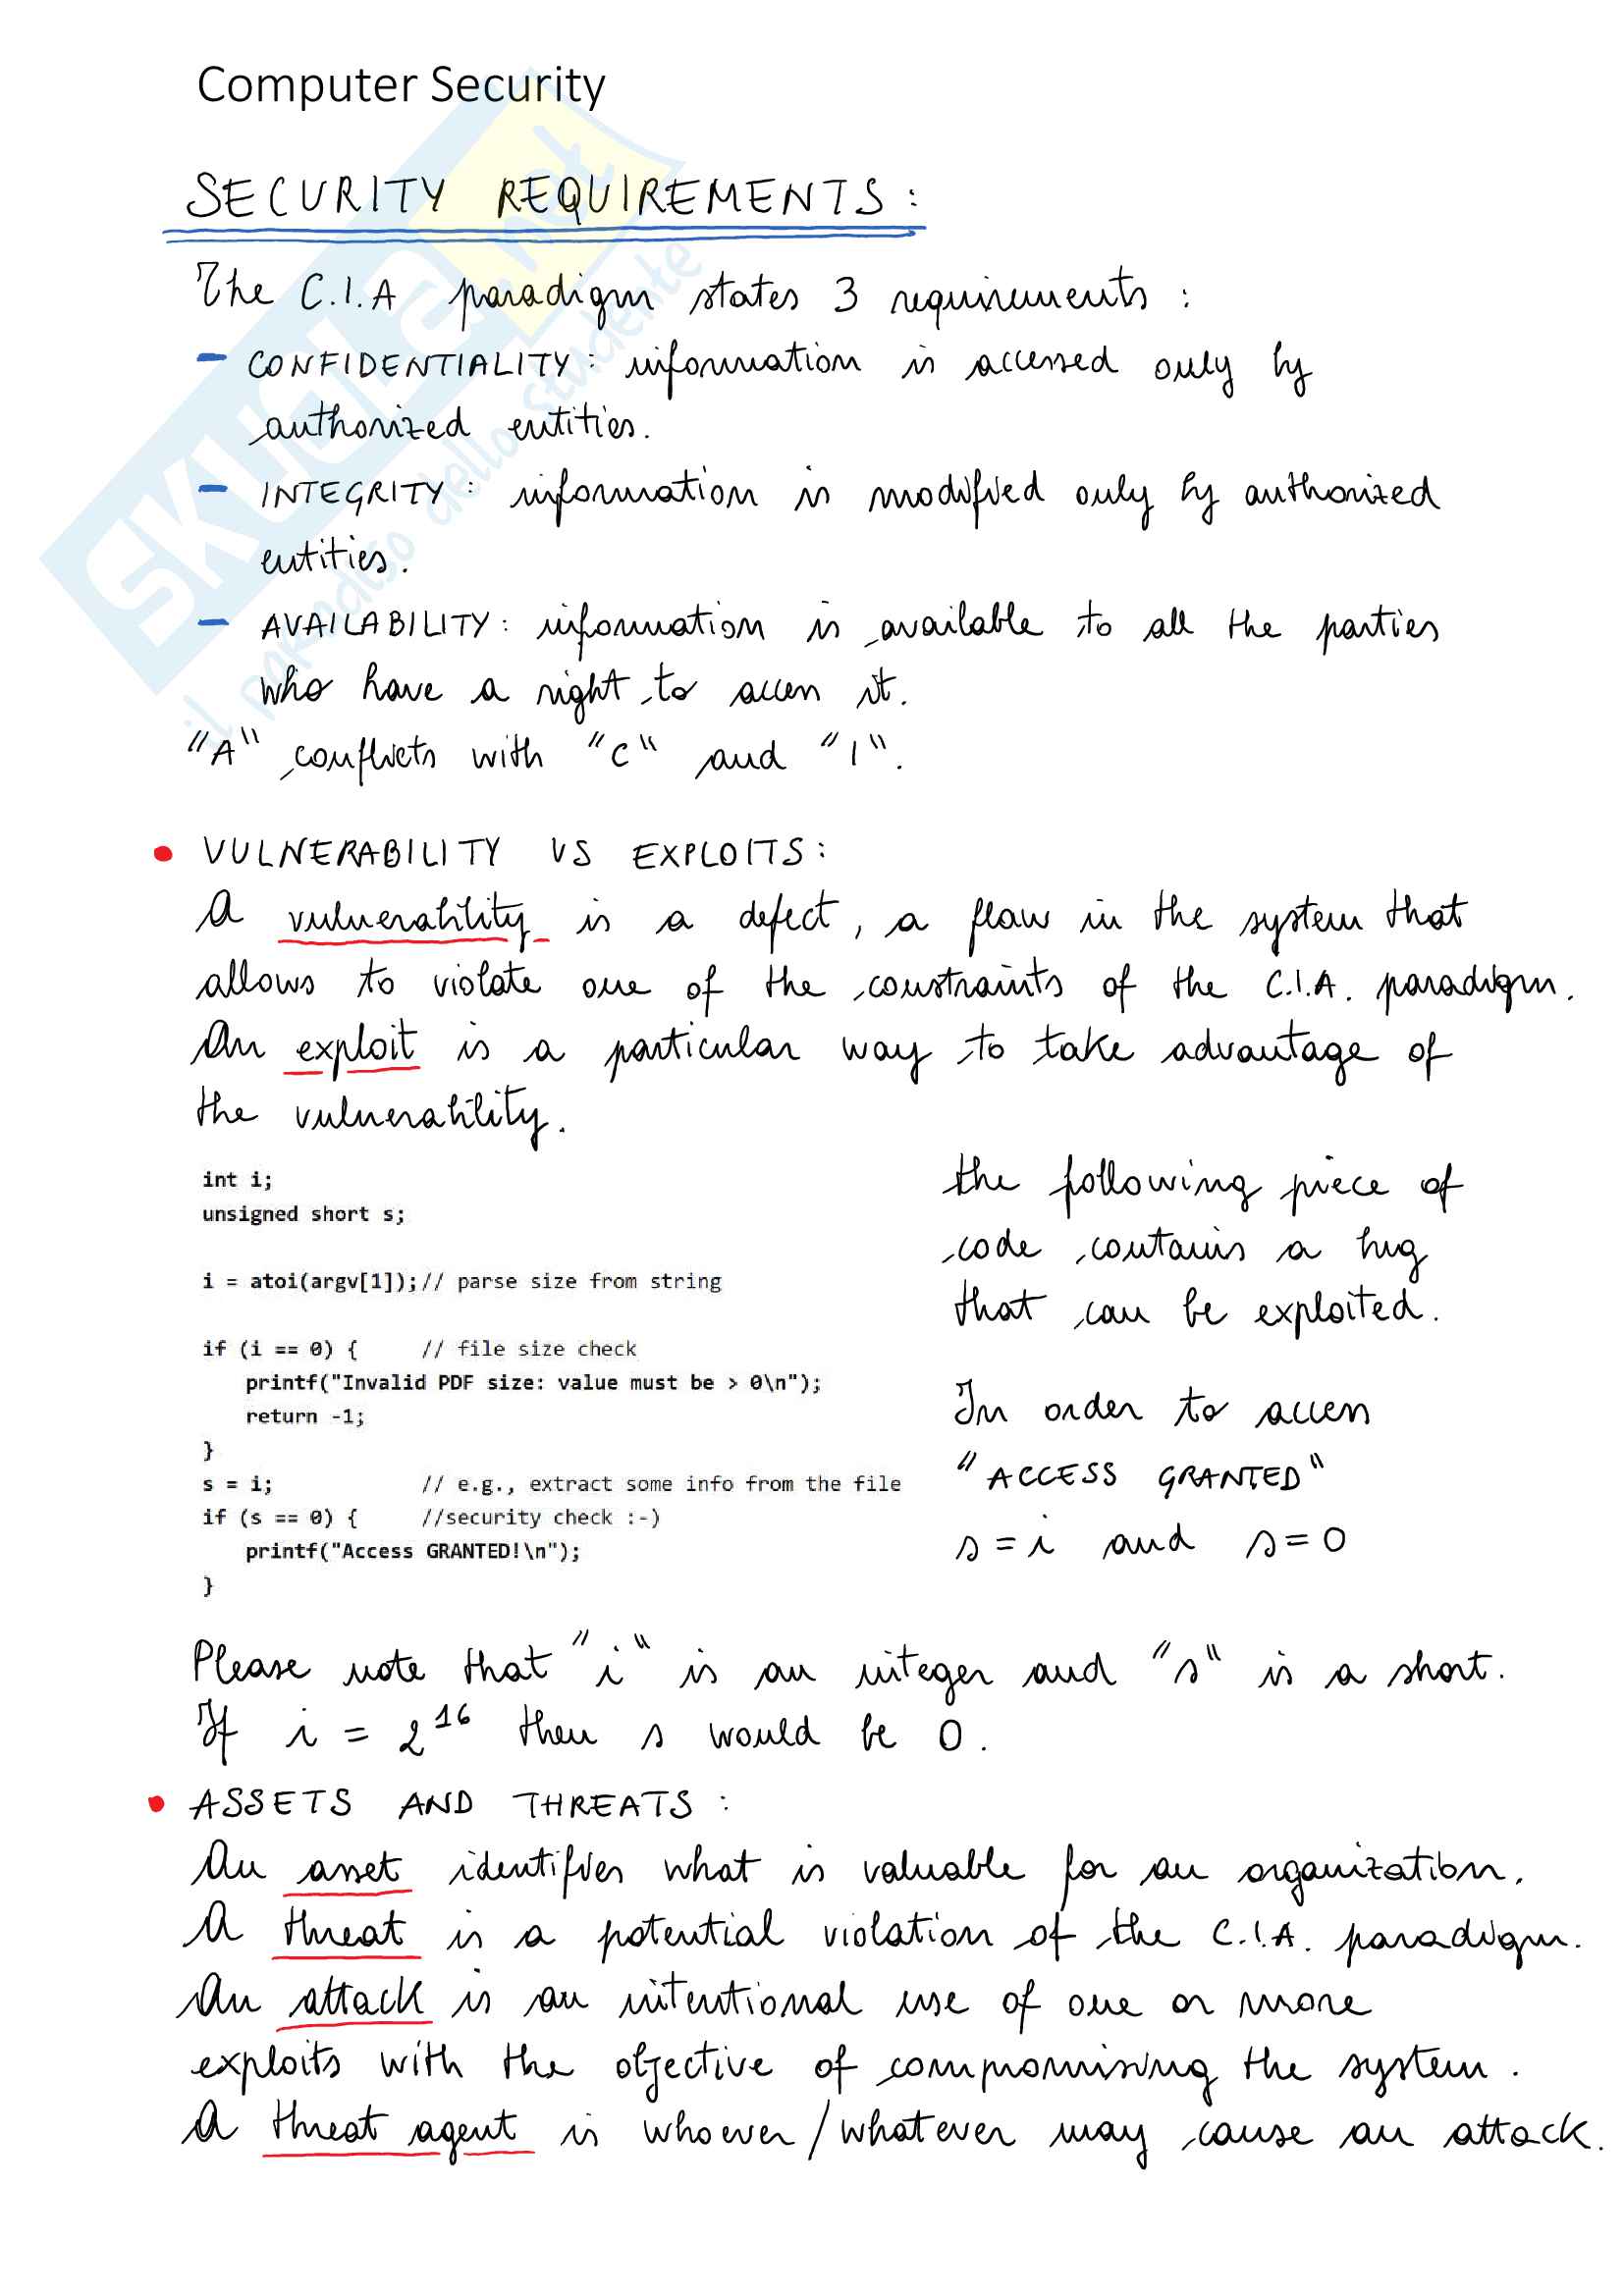 Computer Security
SECURITY REQUIREMENTS:
The C.I.A paradigm states 3 requirements:
- CONFIDENTIALITY: information is accessed only by
authorized entities.
- INTEGRITY: information is modified only by authorized
entities.
- AVAILABILITY: information is available to all the parties
who have a right to access it.
"A" conflicts with "C" and "I".
• VULNERABILITY VS EXPLOITS:
A vulnerability is a defect, a flaw in the system that
allows to violate one of the constraints of the C.I.A. paradigm.
An exploit is a particular way to take advantage of
the vulnerability.
int i;
unsigned short s;
i = atoi(argv[1]);// parse size from string
if (i == 0) { // file size check
printf("Invalid PDF size: value must be > 0\n");
return -1;
}
s = i; // e.g., extract some info from the file
if (s == 0) { //security check :-)
printf("Access GRANTED!\n");
}
the following piece of
code contains a bug
that can be exploited.
In order to access
"ACCESS GRANTED"
s = i and s = 0
Please note that "i" is an integer and "s" is a short.
If i = 2^16 then s would be 0.
• ASSETS AND THREATS:
An asset identifies what is valuable for an organization.
A threat is a potential violation of the C.I.A. paradigm.
An attack is an intentional use of one or more
exploits with the objective of compromising the system.
A threat agent is whoever/whatever may cause an attack.
SKUOLA.net
il paradiso dello studente